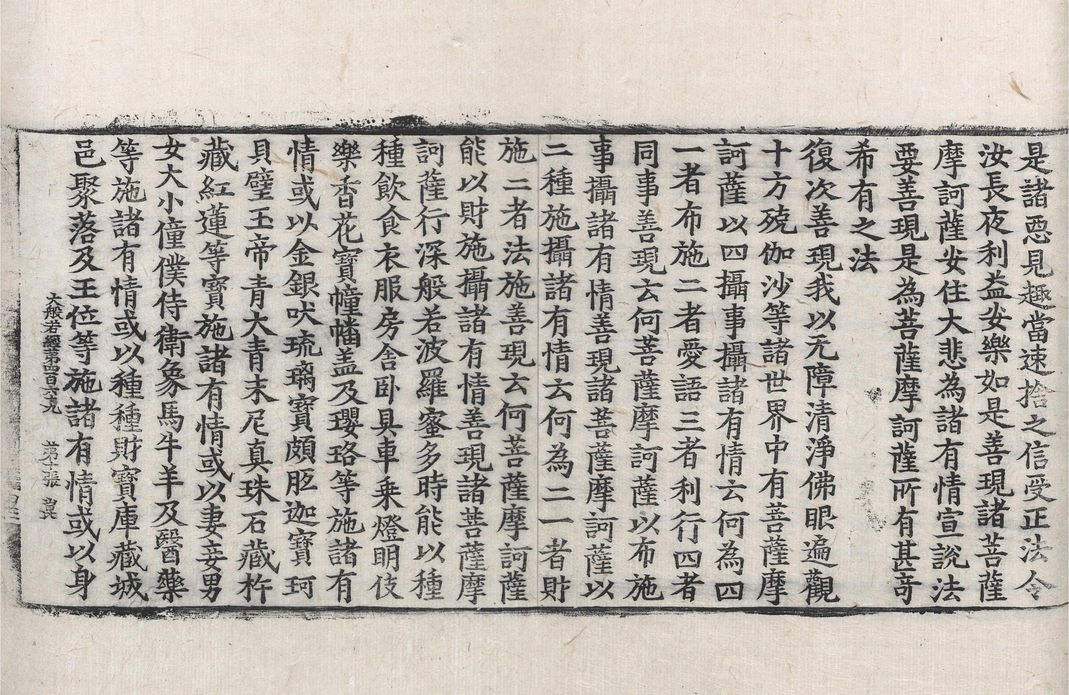 是諸惡見趣當速捨之信受正法令
汝長夜利益安樂如是善現諸菩薩
摩訶薩安住大悲為諸有情宣說法
要善現是為菩薩摩訶薩所有甚奇
希有之法
復次善現我以无障清淨佛眼遍觀
十方殑伽沙等諸世界中有菩薩摩
訶薩以四攝事攝諸有情云何為四
一者布施二者愛語三者利行四者
同事善現云何菩薩摩訶薩以布施
事攝諸有情善現諸菩薩摩訶薩以
二種施攝諸有情云何為二一者財
施二者法施善現云何菩薩摩訶薩
能以財施攝諸有情善現諸菩薩摩
訶薩行深般若波羅蜜多時能以種
種飲食衣服房舍卧具車乘燈明伎
樂香花寶幢幡盖及瓔珞等施諸有
情或以金銀吠琉璃寶頗胝迦寶珂
貝璧玉帝青大青末尼真珠石藏杵
藏紅蓮等寶施諸有情或以妻妾男
女大小僮僕侍衛象馬牛羊及醫藥
等施諸有情或以種種財寶庫藏城
邑聚落及王位等施諸有情或以身
大般若經第四百六十九 第十張